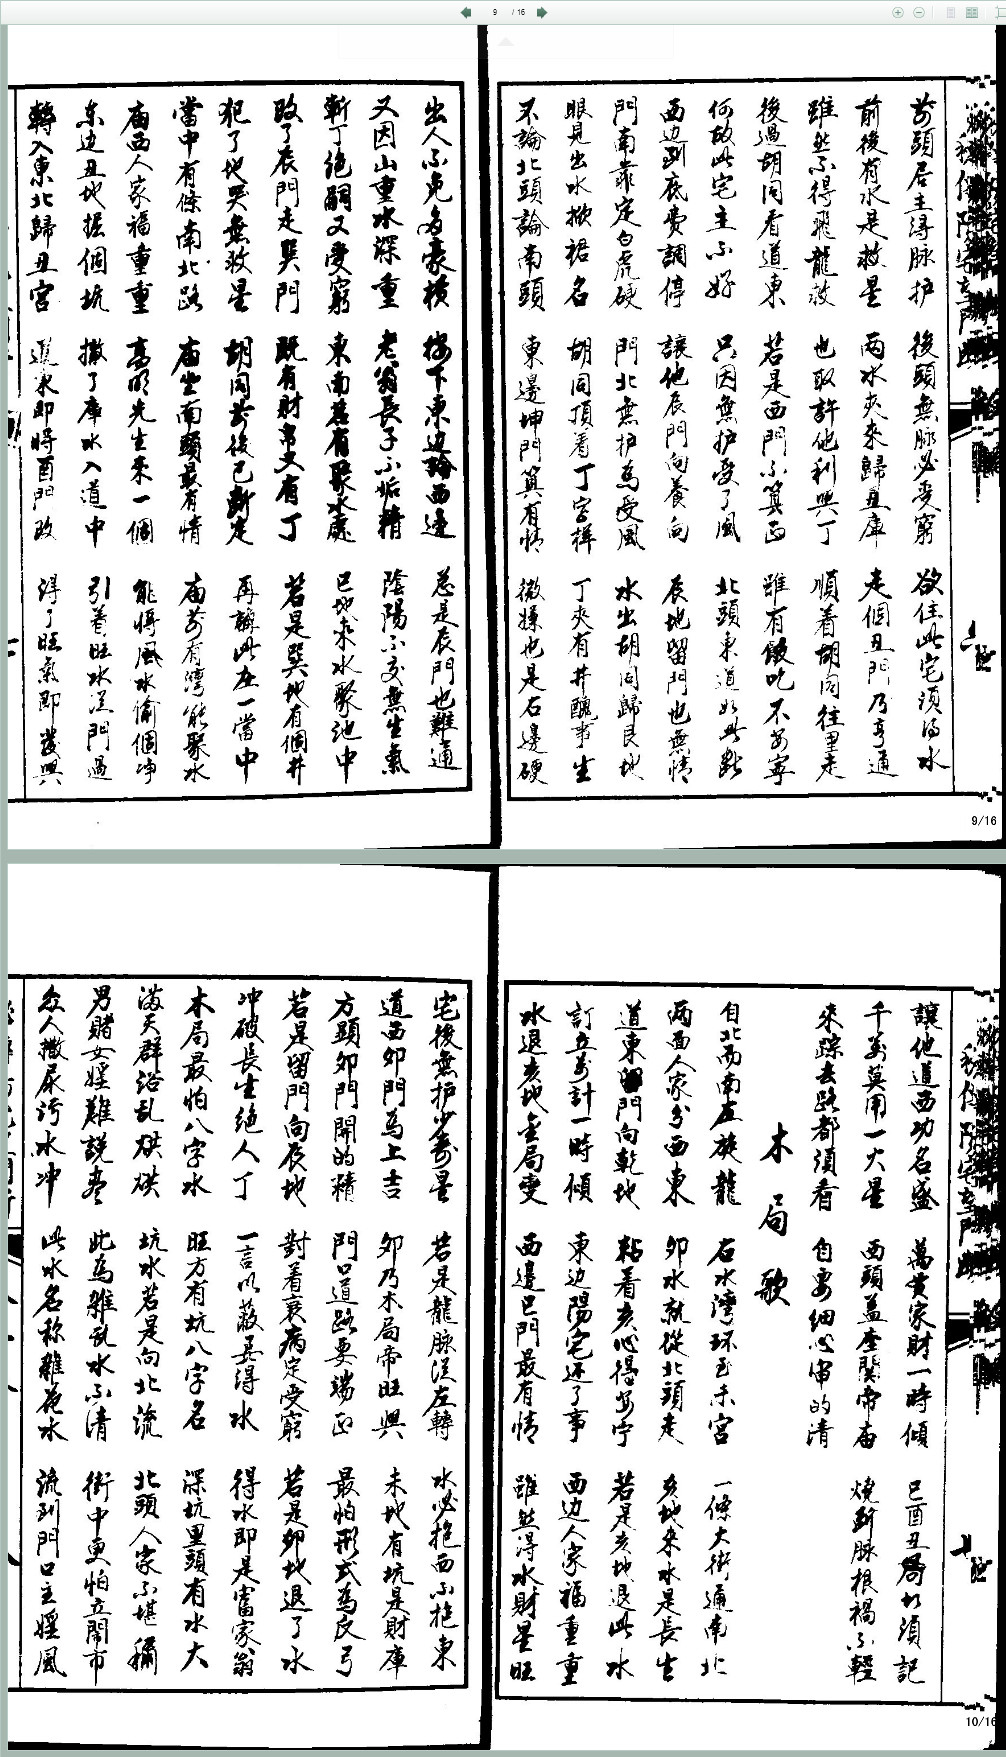 9 / 16
前頭居主得脉护 後頭無脉必受窮 欲住此宅須得水
前後有水是救星 兩水夾來歸丑庫 走個丑門乃亨通
雖然不得飛龍救 也取許他利與丁 順着胡同往里走
後過胡同看道東 若是西門不算正 雖有飯吃不安寧
何故此宅主不好 只因無护受了風 北頭東道如此断
西边到底費調停 讓他辰門向養向 辰地留門也無情
門南靠定白虎硬 門北無护為受風 水出胡同歸艮地
眼見出水掀裙名 胡同頂着丁字樣 丁夾有井醜事生
不論北頭論南頭 東邊坤門算有情 微嫌也是右邊硬
出人不免多豪横 按下東边論西邊 总是辰門也難通
又因山重水深重 老翁長子不垢精 陰陽不交無生氣
斬丁絕嗣又受窮 東南若有聚水處 巳地來水聚池中
改了辰門走巽門 既有財帛又有丁 若是巽地有個井
犯了地哭無救星 胡同前後已断定 再講此庄一當中
當中有條南北路 庙坐南頭最有情 庙前有灣能聚水
庙西人家福重重 高明先生來一個 能將風水偷個净
东边丑地掘個坑 撤了庫水入道中 引着旺水從門過
轉入東北歸丑宮 道東即將酉門改 得了旺氣即發興
9/16
讓他道西功名盛 萬貫家財一時傾 巳酉丑局切須記
千万莫用一火星 西頭盖座關帝庙 燒断脉根禍不輕
來踪去路都須看 自要細心审的清
木局歌
自北而南左旋龍 右水灣环至未宮 一條大街通南北
兩面人家分西東 卯水就從北頭走 亥地來水是長生
道東留門向乾地 粘着亥心得安宁 若是亥地退此水
訂立万計一時傾 東边陽宅还了事 西边人家福重重
水退亥地金局变 西邊巳門最有情 雖然得水財星旺
宅後無护少寿星 若是龍脉從左轉 水必抱西不抱東
道西卯門為上吉 卯乃木局帝旺興 未地有坑是財庫
方顕卯門開的精 門口道路要端正 最怕形式為反弓
若是留門向辰地 對着衰病定受窮 若是卯地退了水
冲破長生絕人丁 一言以蔽曇得水 得水即是富家翁
木局最怕八字水 旺方有坑八字名 深坑里頭有水大
满天群浴乱烘烘 坑水若是向北流 北頭人家不堪稱
男賭女婬難説尽 此為雜乱水不清 街中更怕立閙市
众人撒尿污水冲 此水名称雜花水 流到門口主婬風
10/16